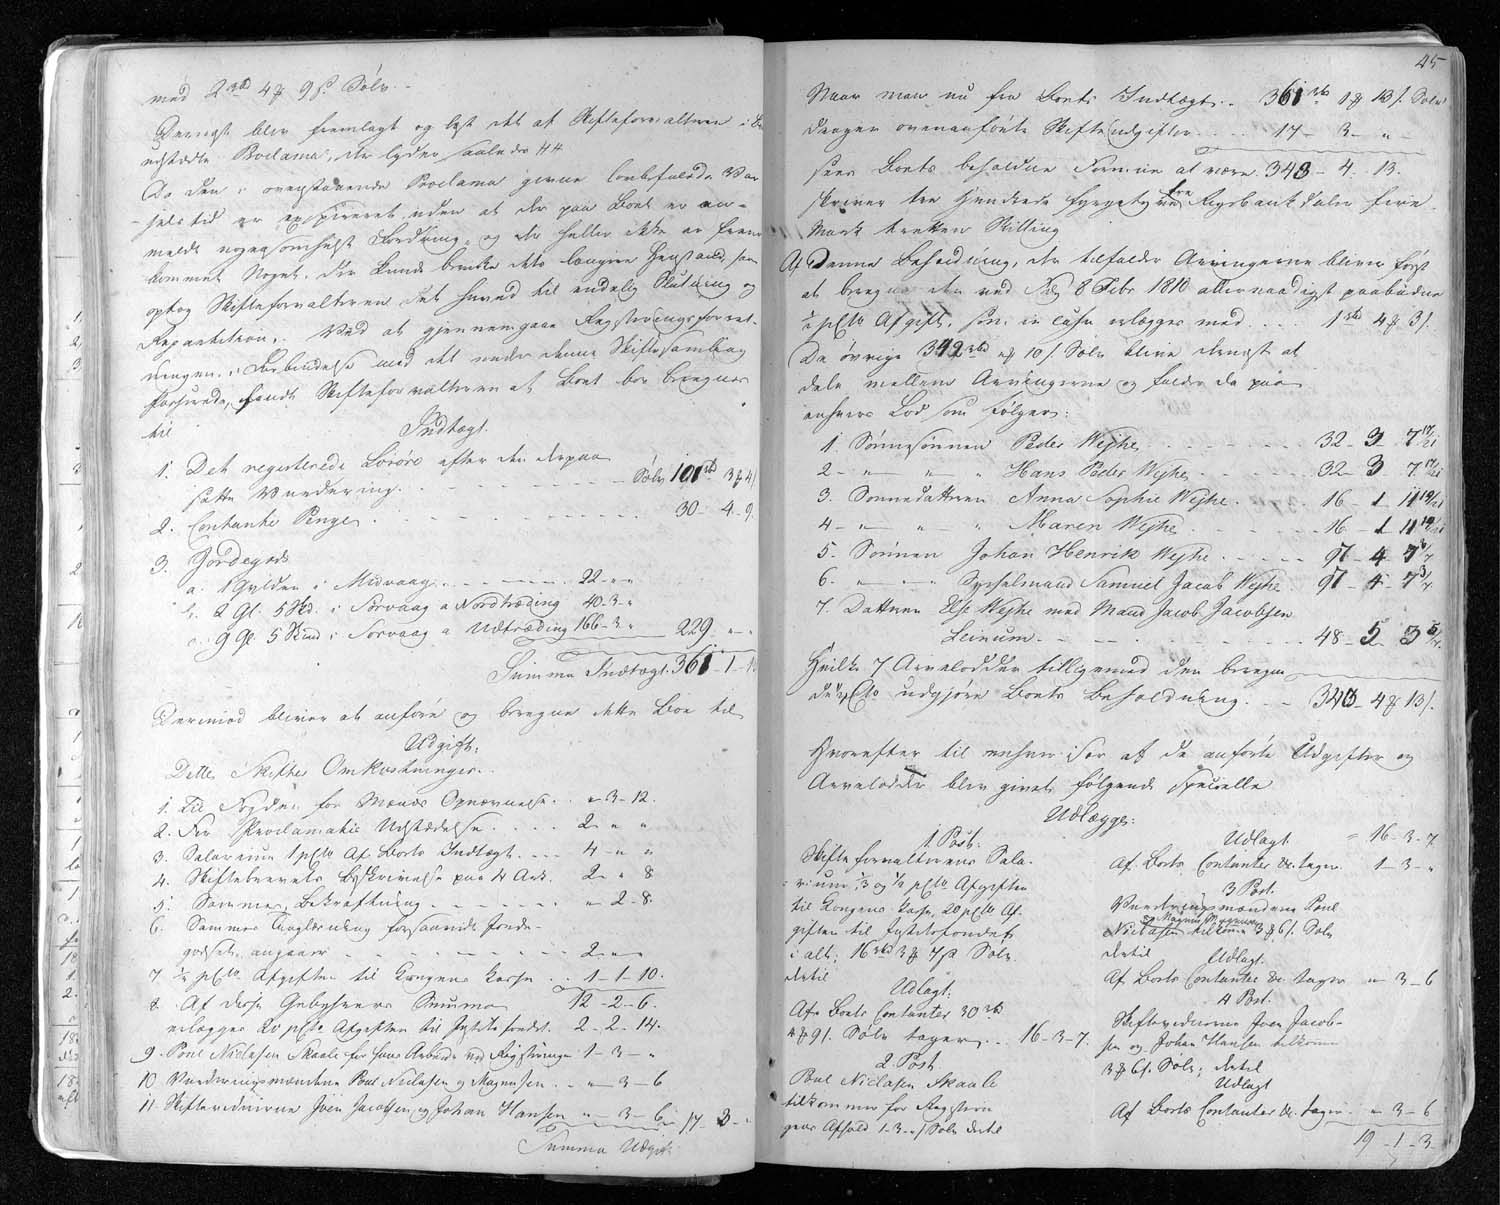 med 2 rbd 4 ℔ 9 s. Sølv.
Dernæst blev fremlagt og læst det af Skifteforvalteren i
udstædte Proclama, der lyder saaledes ##
Da den i ovenstaaende Proclama givne lovbefalede Var-
selstid er exspireret uden at der paa Boet er an-
meldt nogensomhelst Fordring, og der heller ikke er frem
kommet Noget, der kunde bevirke dets længere Henstand, saa
optog Skifteforvalteren det herved til endelig Slutning og
Repartition. Ved at gjennemgaae Registeringsforret-
ningen i Forbindelse med det under denne Skiftesamling
Passerede, fandt Skifteforvalteren at Boet bør beregnes
til
Indtægt.
1. Det registerede Løsøre efter den derpaa
satte Vurdering Sølv 101 rbd 3 ℔ 4 s.
2. Contante Penge 30 - 4 - 9.
3. Jordegods
a. 1 Gylden i Midvaag 22 - " - "
b. 2 Gl. 5 Skd. i Sørvaag a Nordtræding 40 - 3 - "
c. 9 Gl. 5 Skind i Sørvaag a Udtræding 166 - 3 "
229 - " - "
Summa Indtægt. 361 - 1 - 13
Derimod bliver at anføre og beregne dette Boe til
Udgift:
Dette Skiftes Omkostninger.
1. Til Fogden for Mænds Opnævnelse " - 3 - 12.
2. For Proclamatis Udstædelse 2 - " - "
3. Salarium 1 pCto Af Boets Indtægt 4 - " - "
4. Skiftebrevets Beskrivelse paa 4 Ark. 2 - " - 8
5. Sammes Bekræftning " - 2 - 8.
6. Sammes Tinglæsning forsaavidt Jorde-
godset angaaer 2 - " - "
7. ½ pCto Afgiften til Kongens Kasse 1 - 1 - 10.
8. Af disse Gebyhrers Summa 12 - 2 - 6.
erlægges 20 pCto Afgiften til Justitsfondet 2 - 2 - 14.
9. Poul Niclasen Skaale for hans Arbeide ved Registeringen 1 - 3 - "
10. Vurderingsmændene Poul Niclasen og Magnusen " - 3 - 6
11. Skiftevidnerne Joen Jacobsen og Johan Hansen " - 3 - 6 17 - 3 - "
Summa Udgift.
45
Naar man nu fra Boets Indtægt 361 rbd 1 ℔ 13 s. Sølv
drager ovenanførte Skifteudgifter 17 - 3 - "
sees Boets beholdne Formue at være 343 - 4 - 13.
skriver tre Hundrede fyrgetyve tre Rigsbankdaler fire
Mark tretten Skilling
Af Denne Beholdning, der tilfalder Arvingerne bliver først
at beregne den ved Frdg 8 Febr. 1810 allernaadigst paabudne
½ pCto Afgift, som in casu erlægges med 1 rbd 4 ℔ 3 s.
De øvrige 342 rbd " ℔ 10 s. Sølv blive dernæst at
dele mellem Arvingerne og falder da paa
enhvers Lod som følger:
1. Sønnesønnen Peder Wejhe 32 - 3 - 7 17/21
2 - " " " Hans Peder Wejhe 32 - 3 7 17/21
3. Sønnedatteren Anna Sophie Wejhe 16 - 1 11 19/21
4 - " " " Maren Wejhe 16 - 1 11 19/21
5. Sønnen Johan Henrik Wejhe 97 - 4 - 7 3/7
6. - " - Sysselmand Samuel Jacob Wejhe 97 - 4 - 7 3/7
7. Datteren Else Wejhe med Mand Jacob Jacobsen
Leinum 48 - 5 3 5/7
Hvilke 7 Arvelodder tilligemed den beregne-
de ½ pCto udgjøre Boets Beholdning 343 - 4 ℔ 13 s.
Hvorefter til enhver især af de anførte Udgifter og
Arvelodder blev givet følgende specielle
Udlægge:
1 Post.
Skifteforvalterens Sala-
rium, 1/3 og ½ pCto Afgiften
til Kongens Kasse, 20 pCto Af-
giften til Justitsfondet
i alt: 16 rbd 3 ℔ 7 s. Sølv
dertil
Udlagt:
Af Boets Contanter 30 rbd
4 ℔ 9 s. Sølv tages 16 - 3 - 7.
2. Post
Poul Niclasen Skaale
tilkommer for Registerin-
gens Afhold 1 - 3 - " s. Sølv dertil
Udlagt " 16 - 3 - 7
Af Boets Contanter &c. tages 1 - 3 - "
3 Post.
Vurderingsmændene Poul
Niclasen og Magnus Magnusen tilkomme 3 ℔ 6 s. Sølv
dertil Udlagt.
Af Boets Contanter &c tages " - 3 - 6
4 Post.
Skiftevidnerne Joen Jacob-
sen og Johan Hansen tilkomme
3 ℔ 6 s. Sølv; dertil
Udlagt
Af Boets Contanter &c. tages " - 3 - 6
19 - 1 - 3